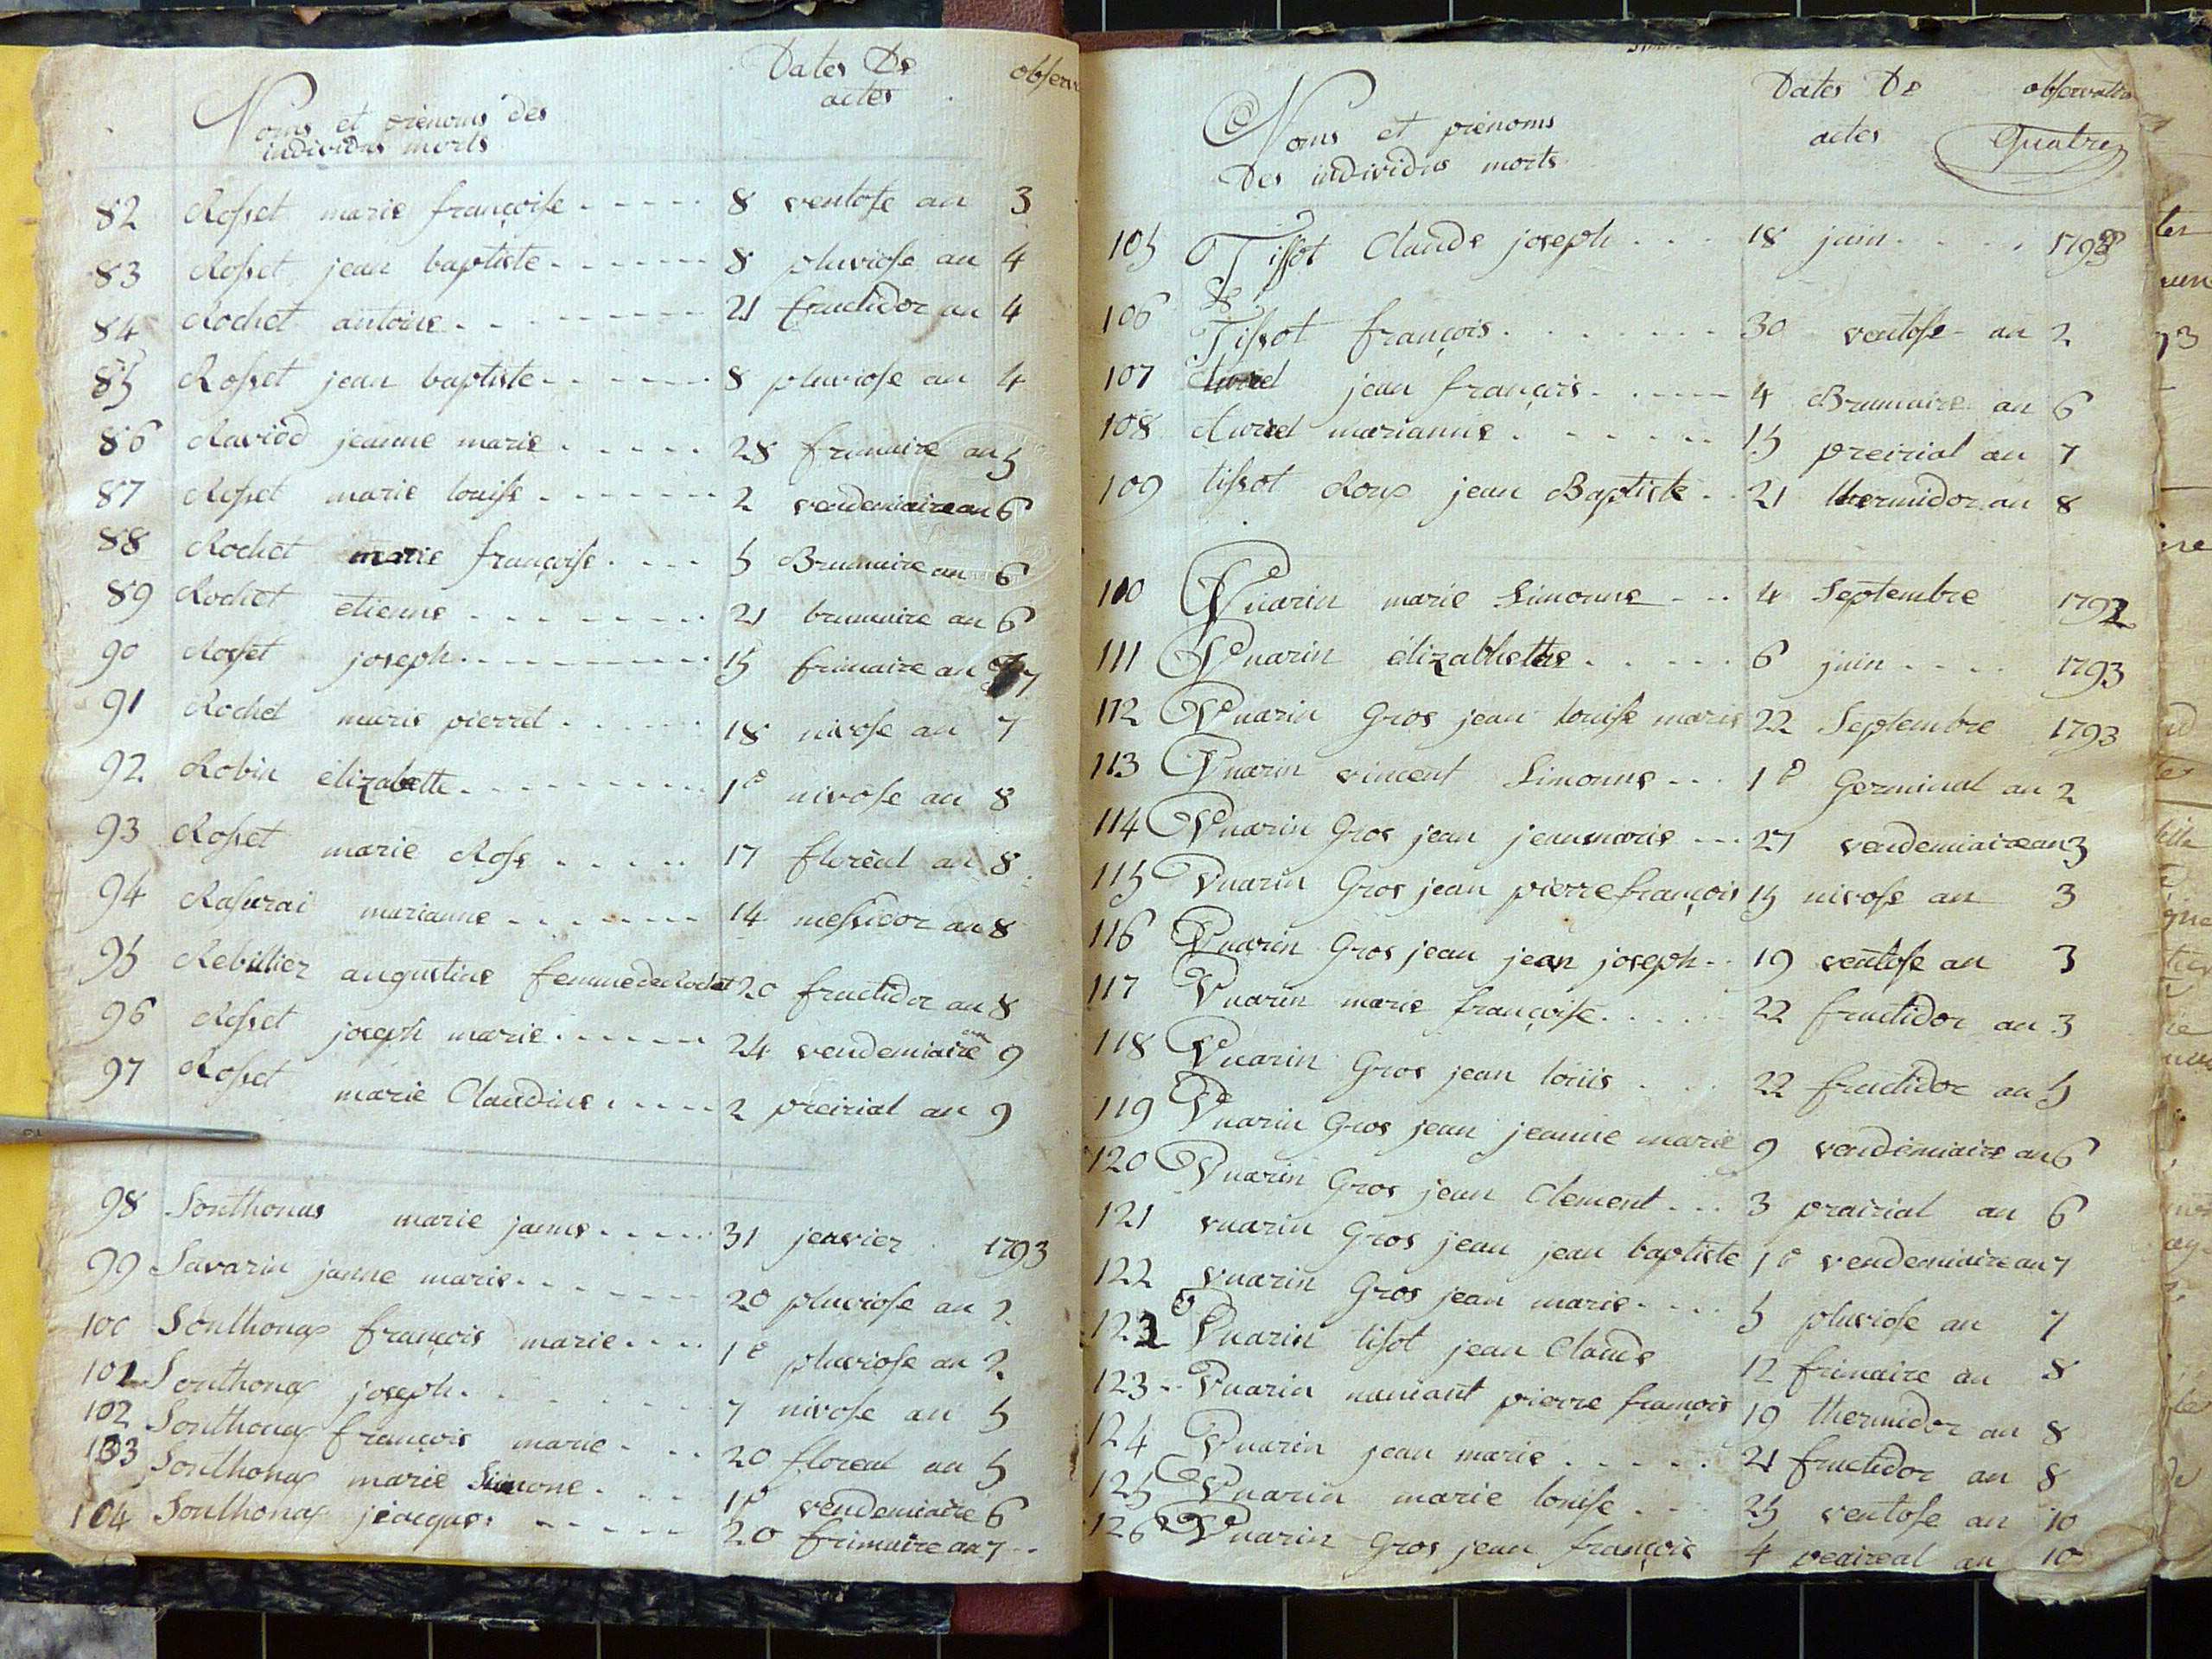 Noms et prénoms des
individus morts
Dates De
actes
observ
82 Rosset marie françoise 8 ventose an 3
83 Rosset jean baptiste 8 pluviose an 4
84 Rochet antoine 21 fructidor an 4
85 Rosset jean baptiste 8 pluviose an 4
86 Raviod jeanne marie 28 frimaire an 5
87 Rosset marie louise 2 vendemiaire an 6
88 Rochet marie françoise 5 Brumaire an 6
89 Rochet etienne 21 brumaire an 6
90 Rosset joseph 15 frimaire an 7
91 Rochet marie pierret 18 nivose an 7
92 Robin élizabette 1e nivose an 8
93 Rosset marie Rose 17 floréal an 8
94 marianne 14 messidor an 8
95 Rebillier augustine femme de Rochet 20 fructidor an 8
96 Rosset joseph marie 24 vendemiaire an 9
97 Rosset marie Claudine 2 preirial an 9
98 Sonthonas marie janne 31 jenvier 1793
99 Savarin janne marie 20 pluviose an 2
100 Sonthonax françois marie 1e pluviose an 2
101 Sonthonax joseph 7 nivose an 5
102 Sonthonax françois marie 20 floreal an 5
103 Sonthonax marie Simone 1e vendemiaire 6
104 Sonthonax jeacques 20 frimaire an 7
Noms et prénoms
Des individus morts
Dates De
actes
observation
Quatre
105 Tissot Claude joseph 18 juin 1793
106 Tissot françois 30 ventose an 2
107 jean français 4 Brumaire an 6
108 marianne 15 preirial an 7
109 tissot Roux jean Baptiste 21 thermidor an 8
110 Vuarin marie Simonne 4 Septembre 1792
111 Vuarin élizabhette 6 juin 1793
112 Vuarin Gros jean louise marie 22 Septembre 1793
113 Vuarin vincent Simonne 1e Germinal an 2
114 Vuarin Gros jean jeanmarie 27 vendemiaire an 3
115 Vuarin Gros jean pierre françois 15 nivose an 3
116 Vuarin Gros jean jean joseph 19 ventose an 3
117 Vuarin marie françoise 22 fructidor an 3
118 Vuarin Gros jean loüis 22 fructidor an 5
119 Vuarin Gros jean jeanne marie 9 vendémiaire an 6
120 Vuarin Gros jean Clement 3 prairial an 6
121 vuarin Gros jean jean baptiste 1e vendemiaire an 7
122 vuarin Gros jean marie 5 pluviose an 7
122 Vuarin tissot jean Claude 12 frimaire an 8
123 Vuarin naniant pierre françois 19 thermidor an 8
124 Vuarin jean marie 21 fructidor an 8
125 Vuarin marie louise 25 ventose an 10
126 Vuarin Gros jean françois 4 an 10